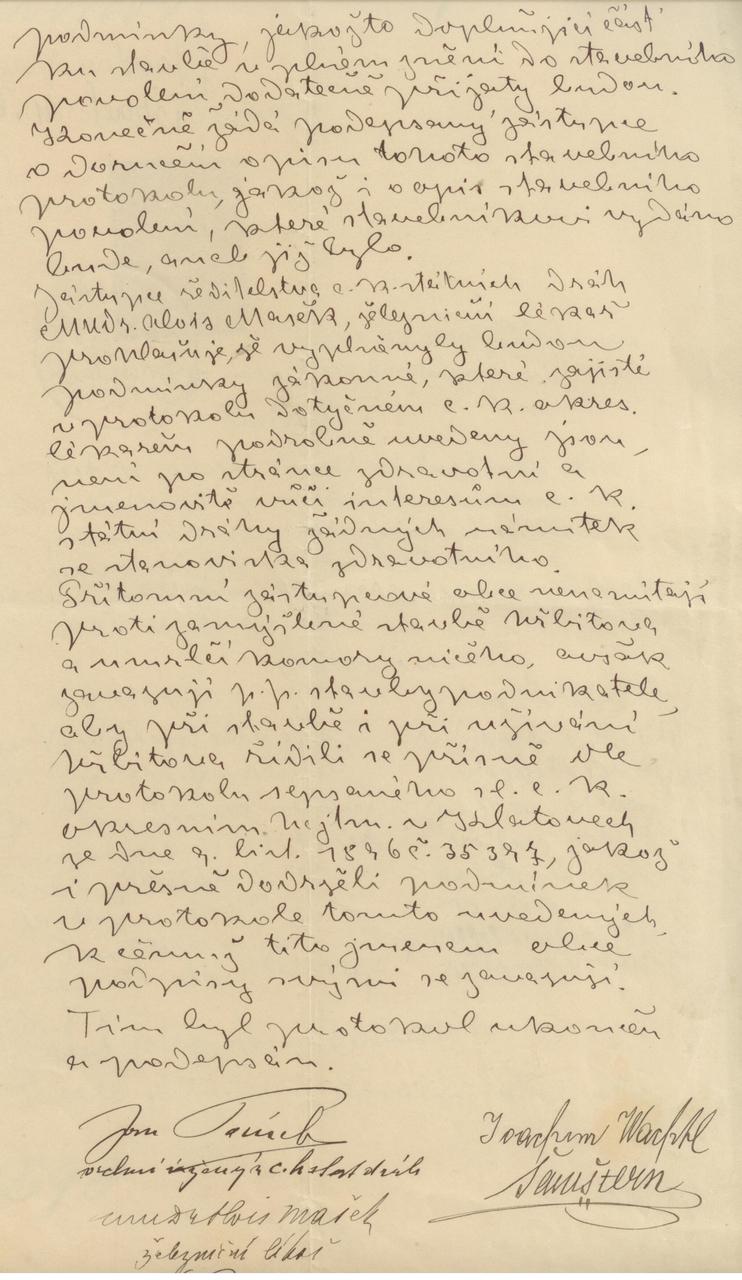 podmínky, jakožto doplňující část
ku stavbě v plném znění do stavebního
povolení dodatečně přijaty budou.
Konečně žádá podepsaný zástupce
o doručení opisu tohoto stavebního
protokolu, jakož i o opis stavebního
povolení, které stavebníkovi vydáno
bude, aneb již bylo.
Zástupce ředitelstva c. k. státních drah
MUDr. Alois Mašek, železniční lékař
prohlašuje, že vyplněny-ly budou
podmínky zákonné, které zajisté
v protokolu dotyčném c. k. okres.
lékařem podrobně uvedeny jsou,
není po stránce zdravotní a
jmenovitě vůči interesům c. k.
státní dráhy žádných námitek
se stanoviska zdravotního.
Přítomní zástupcové obce nenamítají
proti zamýšlené stavbě hřbitova
a umrlčí komory ničeho, avšak
zavazují p.p. stavbypodnikatele,
aby při stavbě i při užívání
hřbitova řídili se přísně dle
protokolu sepsaného sl. c. k.
okresním hejtm. v Klatovech
ze dne 9. list. 1896 č. 35397, jakož
i přesně dodrželi podmínek
v protokole tomto uvedených,
k čemuž tito jmenem obce
podpisy svými se zavazují.
Tím byl protokol ukončen
a podepsán.
Joachim Wachtl
c. k. stat drah
MUDr Alois Mašek
železniční lékař